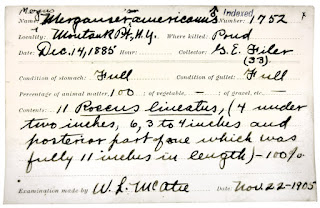 Mergus Indexed
Name: Merganser americanus ♂ Number: 1752
Locality: Montauk Pt, N.Y. Where killed: Pond
Date: Dec. 14, 1885 Hour: Collector: G.E. Filer
(33)
Condition of stomach: Full Condition of gullet: Full
Percentage of animal matter, 100 ; of vegetable, – ; of gravel, etc. –
Contents: 11 Roccus lineatus, (4 under
two inches, 6, 3 to 4 inches and
posterior part of one which was
fully 11 inches in length) – 100%
Examination made by W. L. McAtee Date: Nov. 22 - 1905